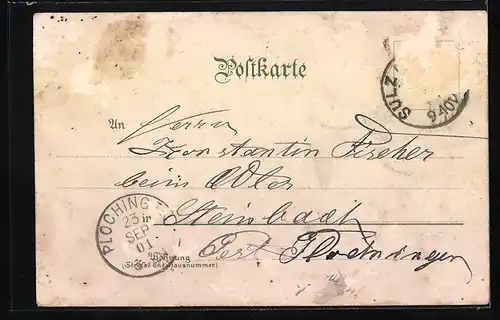 Postkarte
SULZ
9-10V
An Herrn
Konstantin Fischer
beim Adler
Steinbach
PLOCHINGEN
23
SEP
01
Wohnung
(Straße und Hausnummer)
Post Plochingen